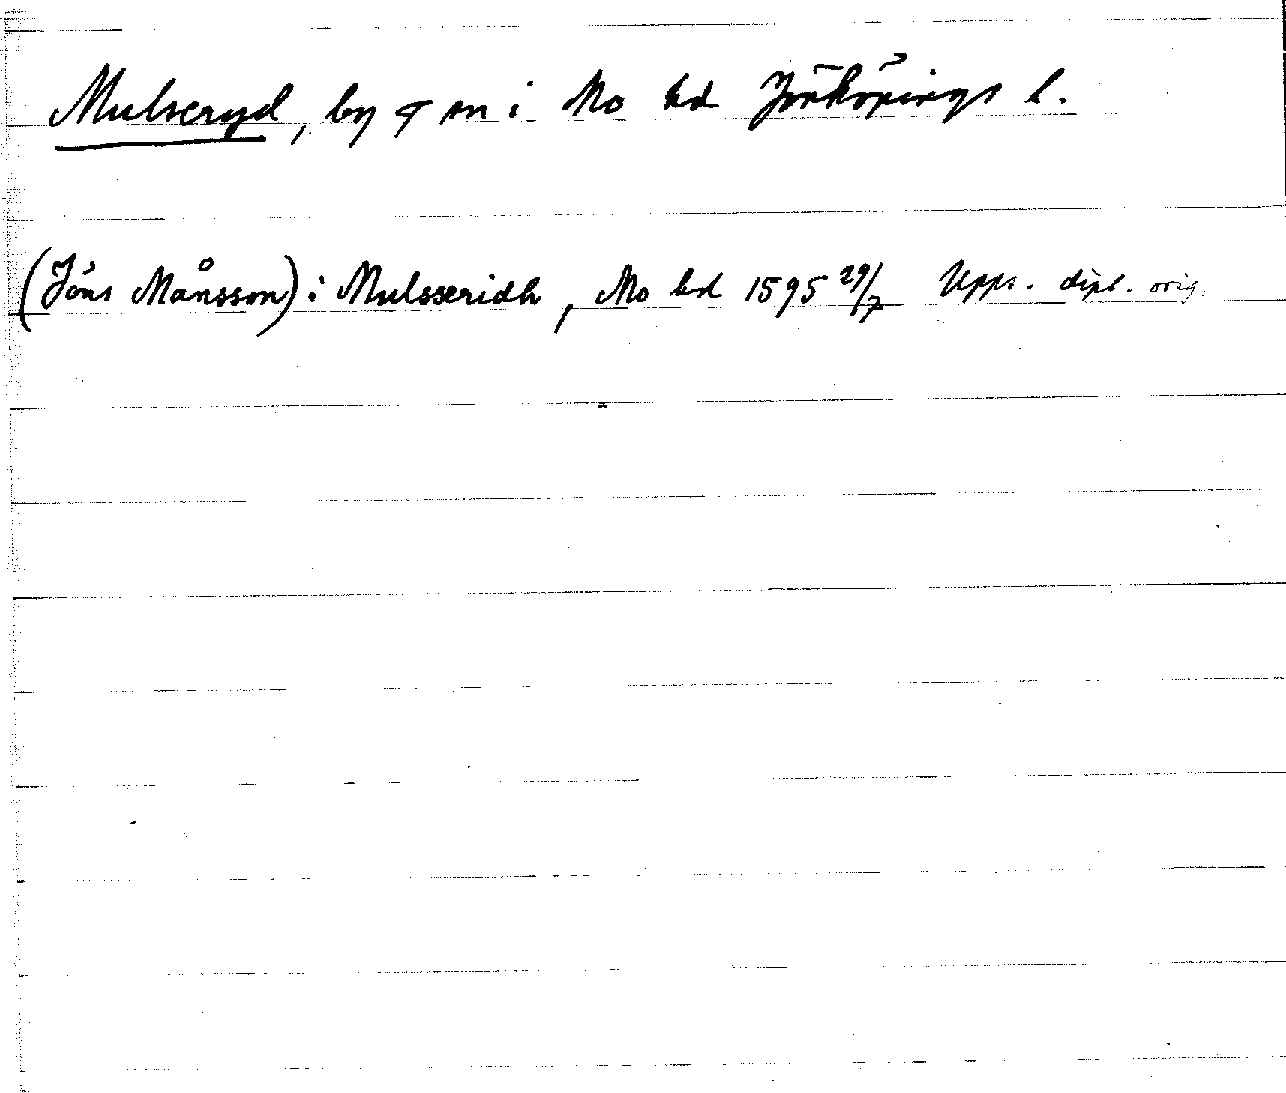 Mulseryd, by o sn i Mo hd Jönköpings l.
(Jöns Månsson) i Mulsseridh, Mo hd 1595 29/7 Upps. dipl. orig.